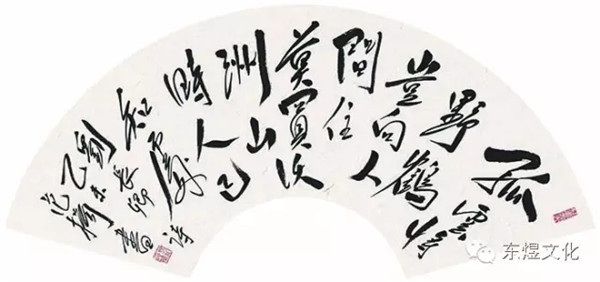 孤雲將
野鶴
豈向人
間住
莫買沃
洲山
時人已
知處
劉長卿詩
乙未
范揚書
东煜文化